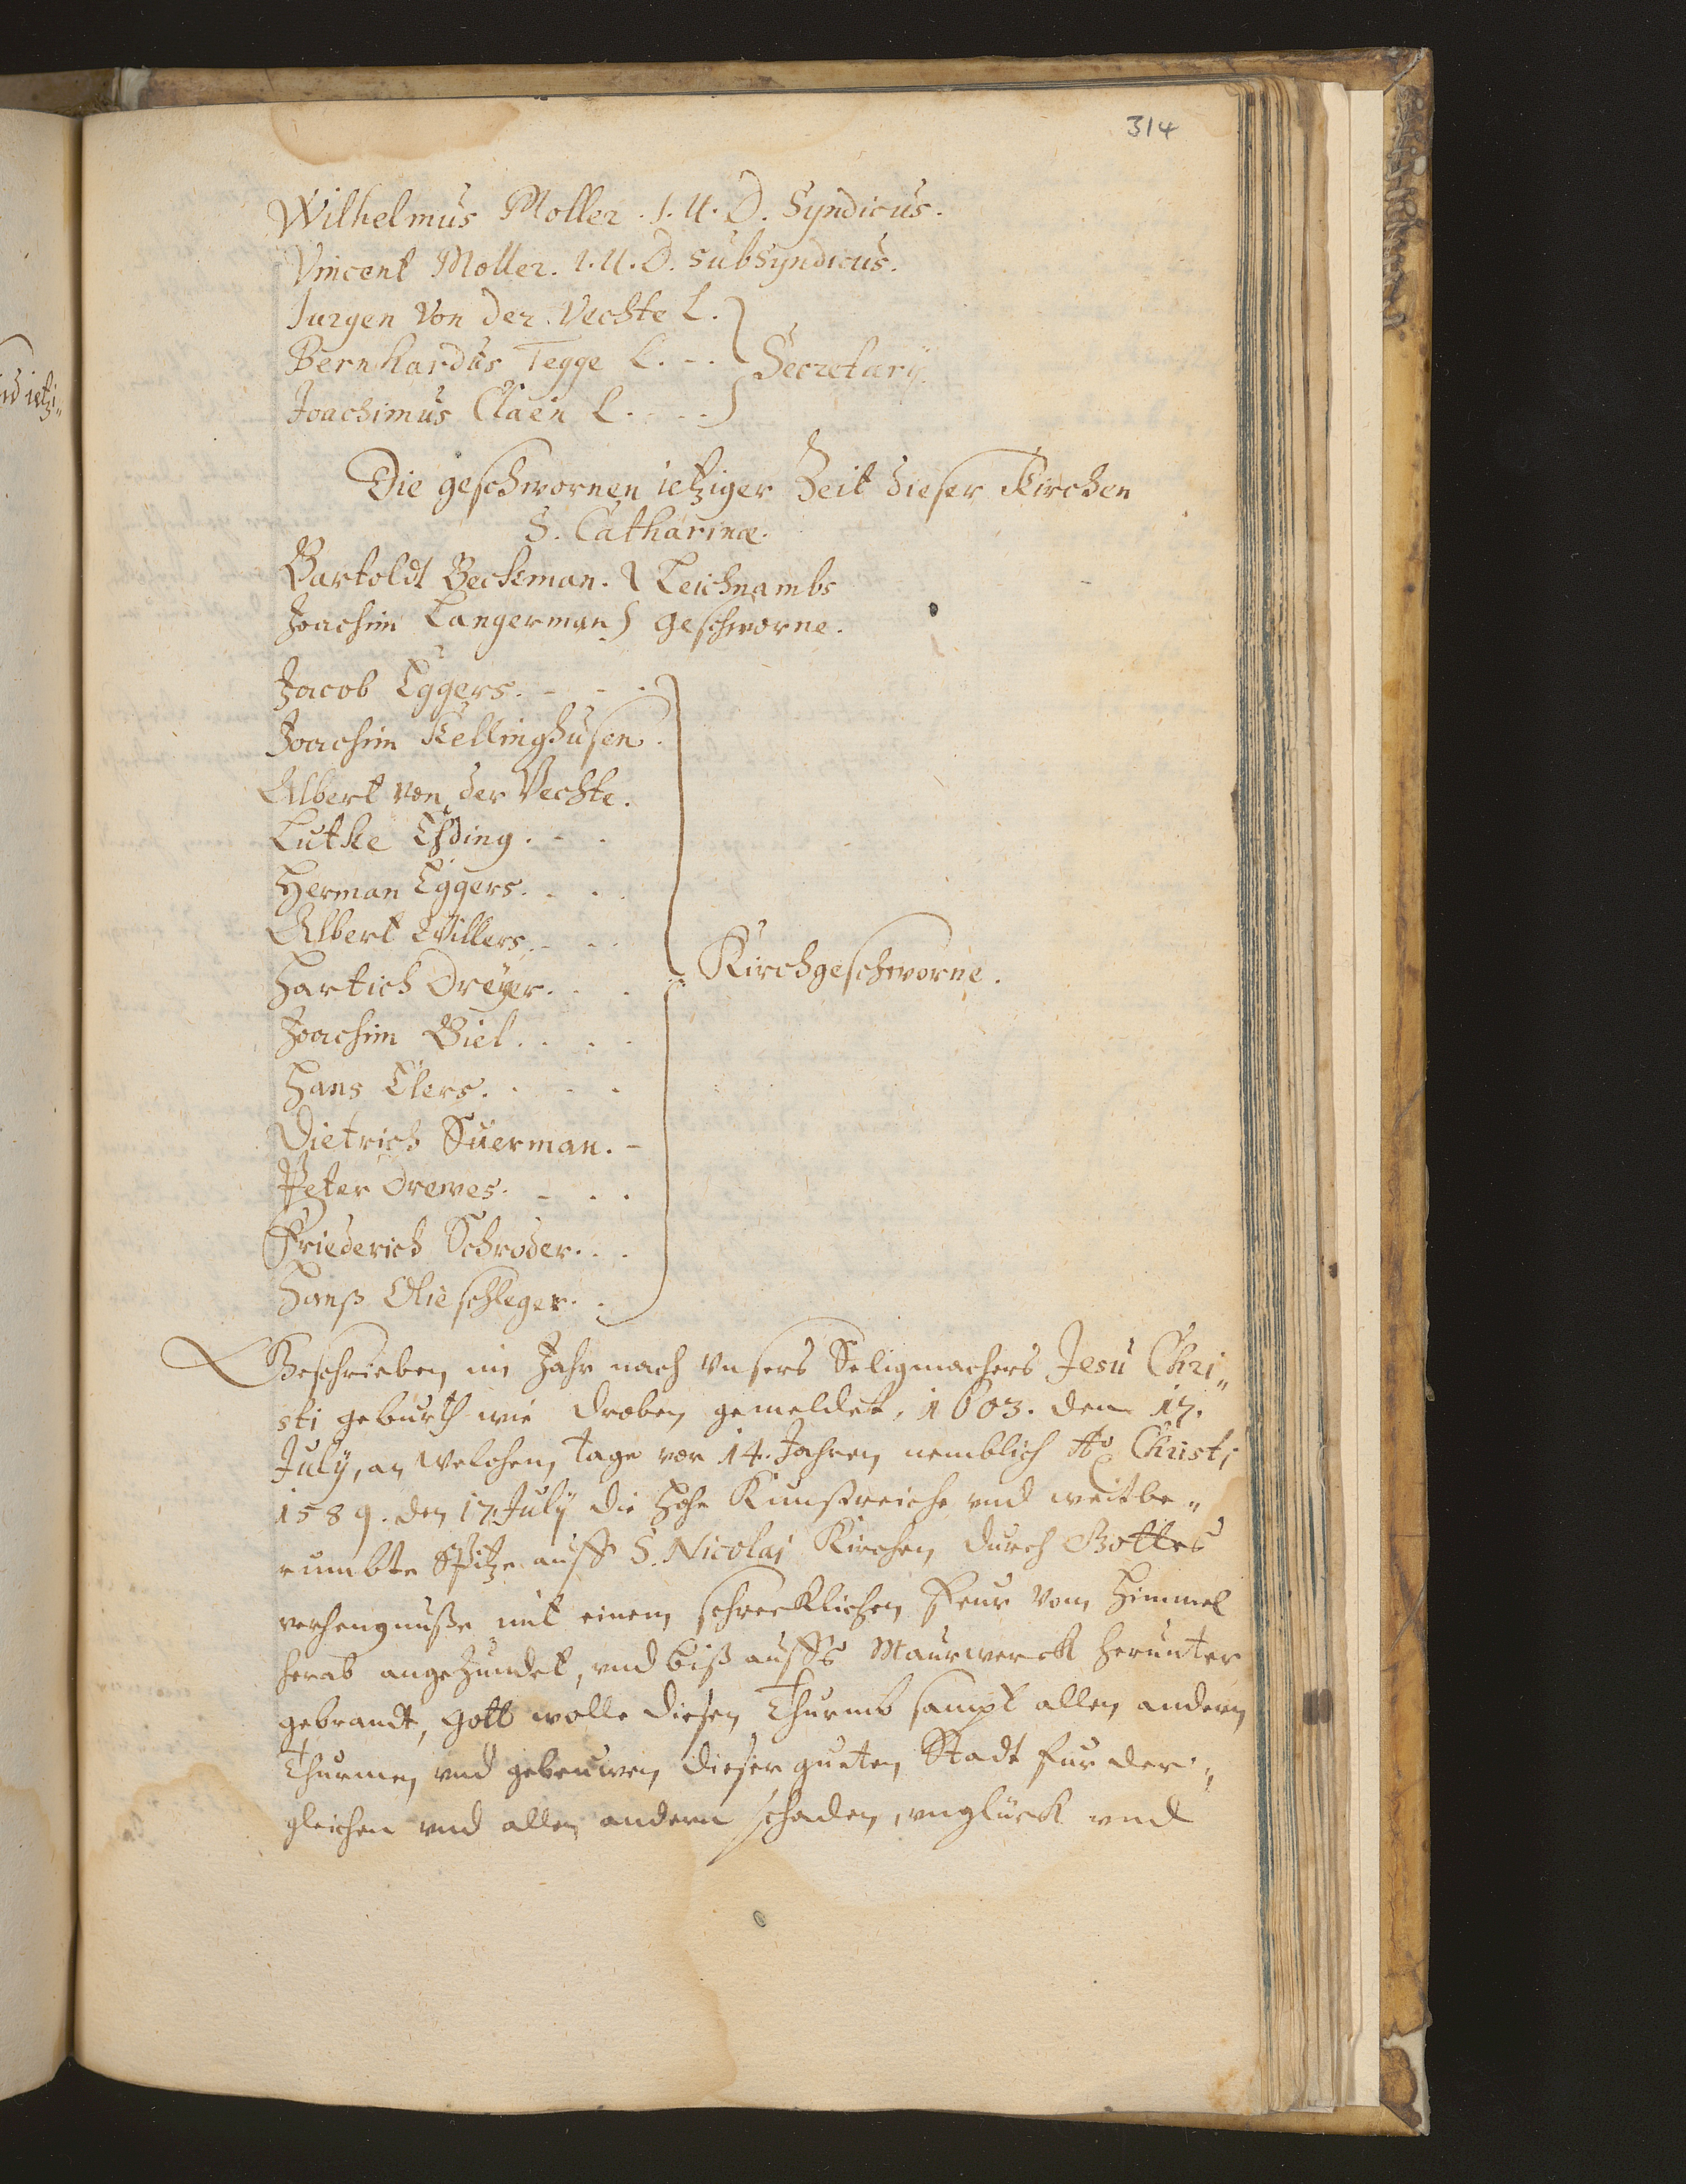 314
Wilhelmus Moller. I. U. D. Syndicus.
Vincent Moller. I. U. D. subSyndicus.
Jurgen von der Vechte L.
Bernhardus Tegge L. - . Secretarij
Joachimus Claen L. . . .
Die geschwornen ietziger Zeit dieser Kirchen
S. Catharinæ.
Bartoldt Beckman. Leichnambs
Joachim Langerman geschworne.
Jacob Eggers. - - .
Joachim Kellinghusen.
Albert von der Vechte.
Lutke Esding. - .
Herman Eggers. - . .
Albert Willers. - . .
Hartich Dreyer. . . Kirchgeschworne.
Joachim Biel. . . .
Hans Elers. . - .
Dietrich Süerman. -
Peter Drewes. - . .
Friederich Schroder. . .
Hanß Olieschleger. .
Geschrieben im Jahr nach vnsers Seligmachers Jesu Chri„
sti geburth wie droben gemeldet, 1603. den 17.
July, an welchem tage vor 14. Jahren nemblich Ao Christi
1589. den 17. July die hohe Kunstreiche vnd weitbe„
rumbte Spitze auff S. Nicolai Kirchen durch Gottes
verhengnuße mit einem schrecklichen feur vom Himmel
herab angezundet, vnd biß auffs Maurwerck herunter
gebrandt, Gott wolle diesen Thurmb sampt allen andern
Thurmen vnd gebeuwen dieser gueten Stadt fur der„
gleichen vnd allen andern schaden, vnglück vnd